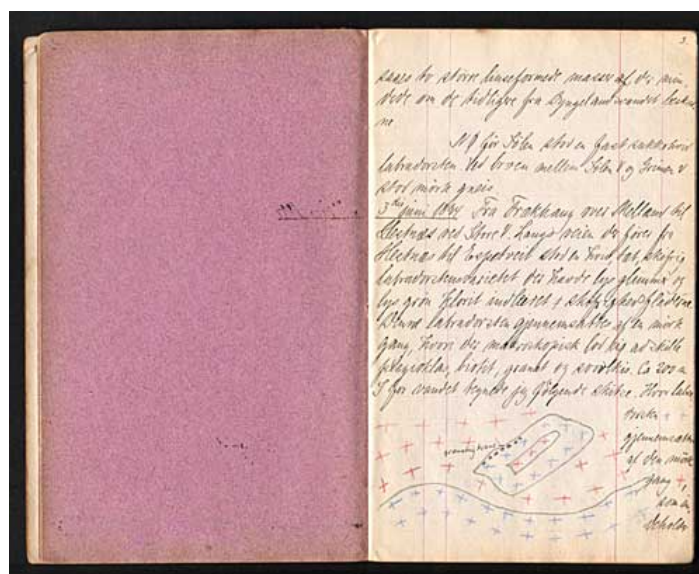 3.
saaes to större linseformede masser af de: min
dede om de tidligere fra Lyngelandsvandet beskrev
ne
NØ for Sölen stod en fast sukkerhvid
labradorsten. Ved broen mellem Sölen V. og Grimen V
stod mörk gneis
3die juni 1904 Fra Frakhaug over Mölland til
Hestnæs ved Store V. Langs veien der förer fra
Hestnæs til Espetveit stod en hvid, tæt, skifrig
labradorstensvarietet der havde lys glimmer og
lys grön klorit indleiret i skifrighedsfladerne
Denne labradorsten gjennemsættes af en mörk
gang, hvori der makroskopisk lod sig adskille
plagioklas, biotit, granat og svovlkis. Ca 200 m
S for vandet tegnede jeg fölgende skitse. Hvor labra
dorsten
gjennemsættes
af den mörke
gang,
som in
deholder